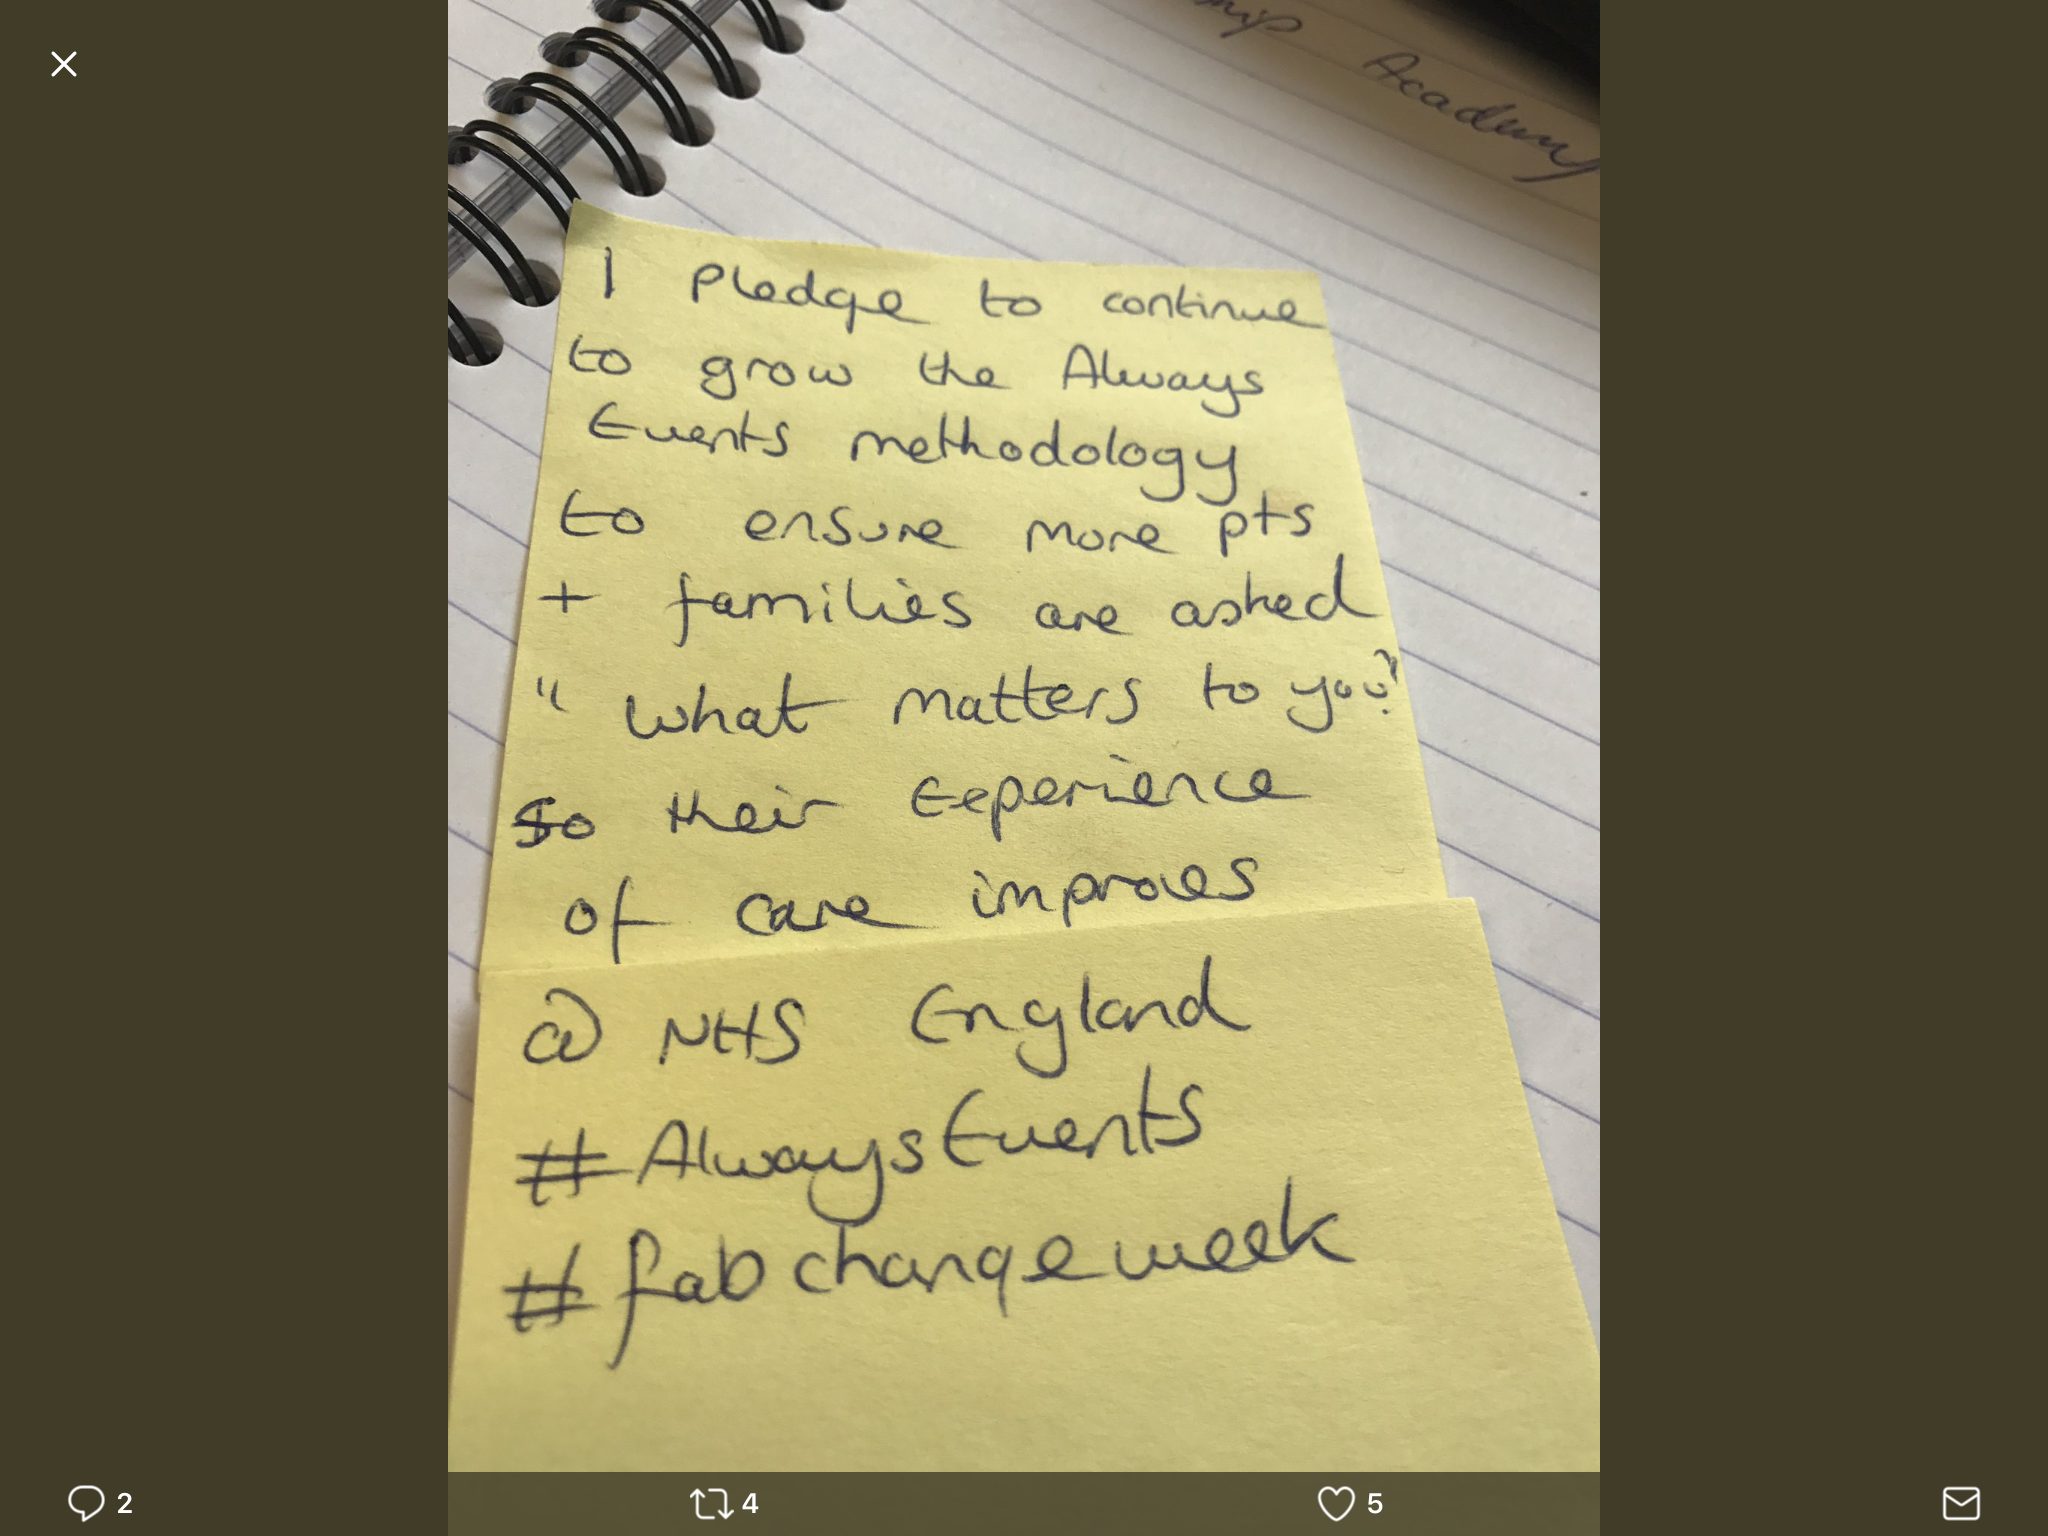 Academy
I Pledge to continue
to grow the Always
Events methodology
to ensure more pts
+ families are asked
"what matters to you?"
So their Experience
of care improves
@ NHS England
#AlwaysEvents
#fabchangeweek
2
4
5